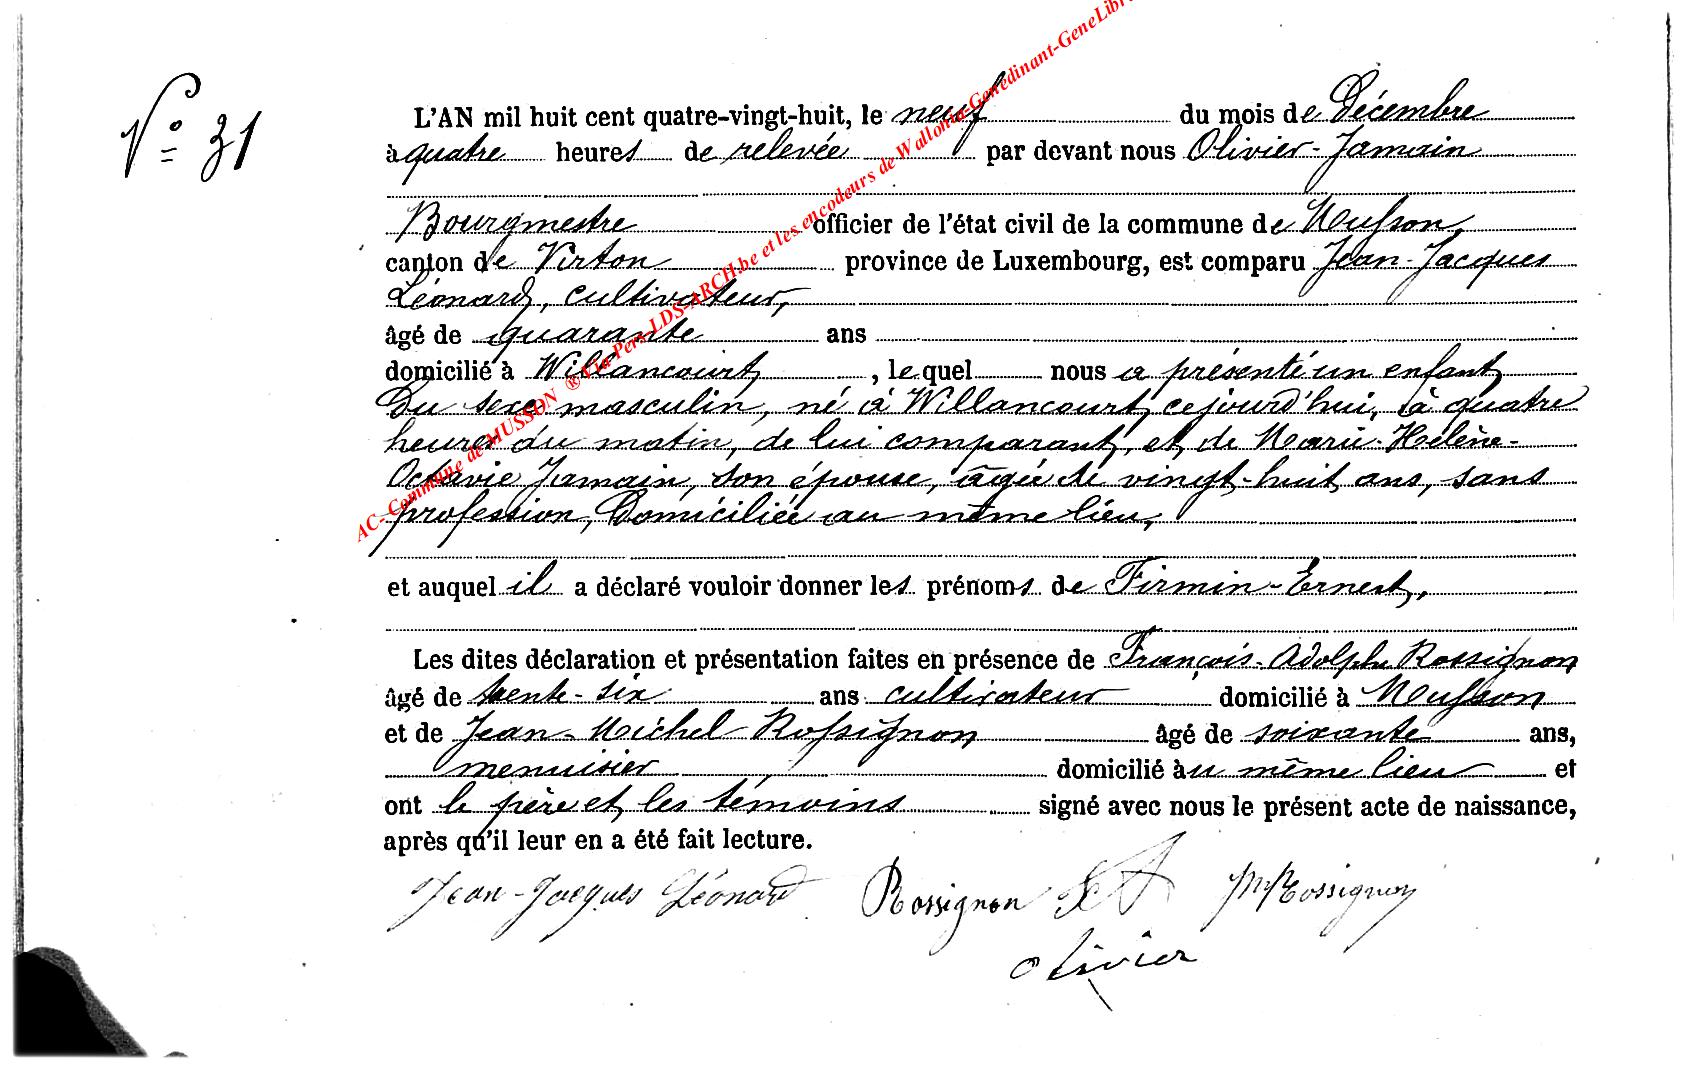 N° 31
L'AN mil huit cent quatre-vingt-huit, le neuf du mois de Décembre
à quatre heures de relevée par devant nous Olivier-Jamain
Bourgmestre officier de l'état civil de la commune de Musson,
canton de Virton province de Luxembourg, est comparu Jean-Jacques
Léonard, cultivateur,
âgé de quarante ans
domicilié à Willancourt, lequel nous a présenté un enfant
du sexe masculin, né à Willancourt, cejourd'hui, à quatre
heures du matin, de lui comparant, et de Marie-Hélène-
Octavie Jamain, son épouse, âgée de vingt-huit ans, sans
profession, domiciliée au même lieu,
et auquel il a déclaré vouloir donner les prénoms de Firmin-Ernest,
Les dites déclaration et présentation faites en présence de François-Adolphe Rossignon
âgé de trente-six ans cultivateur domicilié à Musson
et de Jean-Michel Rossignon âgé de soixante ans,
menuisier domicilié au même lieu et
ont le père et les témoins signé avec nous le présent acte de naissance,
après qu'il leur en a été fait lecture.
Jean-Jacques Léonard Rossignon JMRossignon
Olivier
AC-Commune de MUSSON ® Via Pers-LDS-ARCH.be et les encodeurs de Wallonia-Genedinant-GeneLibr